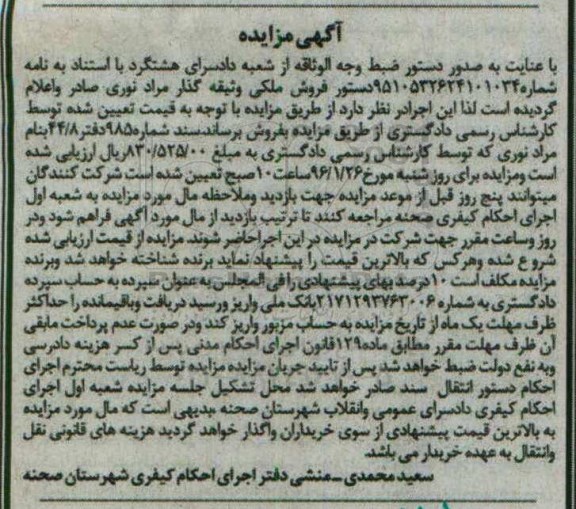 آگهی مزایده
با عنایت به صدور دستور ضبط وجه الوثاقه از شعبه دادسرای هشتگرد با استناد به نامه
شماره۹۵۱۰۵۳۲۶۲۴۱۰۱۰۳۴دستور فروش ملکی وثیقه گذار مراد نوری صادر واعلام
گردیده است لذا این اجرادر نظر دارد از طریق مزایده با توجه به قیمت تعیین شده توسط
کارشناس رسمی دادگستری از طریق مزایده بفروش برساند.سند شماره۹۸۵دفتر۴۴/۸بنام
مراد نوری که توسط کارشناس رسمی دادگستری به مبلغ ۸۳۰/۵۲۵/۰۰ریال ارزیابی شده
است ومزایده برای روز شنبه مورخ۹۶/۱/۲۶ساعت۱۰صبح تعیین شده است شرکت کنندگان
میتوانند پنج روز قبل از موعد مزایده جهت بازدید وملاحظه مال مورد مزایده به شعبه اول
اجرای احکام کیفری صحنه مراجعه کنند تا ترتیب بازدید از مال مورد آگهی فراهم شود ودر
روز وساعت مقرر جهت شرکت در مزایده در این اجراحاضر شوند. مزایده از قیمت ارزیابی شده
شروع شده وهرکس که بالاترین قیمت را پیشنهاد نماید برنده شناخته خواهد شد وبرنده
مزایده مکلف است ۱۰درصد بهای پیشنهادی رافی المجلس به عنوان سپرده به حساب سپرده
دادگستری به شماره ۲۱۷۱۲۹۳۷۶۳۰۰۶بانک ملی واریز ورسید دریافت وباقیمانده را حداکثر
ظرف مهلت یک ماه از تاریخ مزایده به حساب مزبور واریز کند ودر صورت عدم پرداخت مابقی
آن ظرف مهلت مقرر مطابق ماده۱۲۹قانون اجرای احکام مدنی پس از کسر هزینه دادرسی
وبه نفع دولت ضبط خواهد شد پس از تایید جریان مزایده مزایده توسط ریاست محترم اجرای
احکام دستور انتقال سند صادر خواهد شد محل تشکیل جلسه مزایده شعبه اول اجرای
احکام کیفری دادسرای عمومی وانقلاب شهرستان صحنه بدیهی است که مال مورد مزایده
به بالاترین قیمت پیشنهادی از سوی خریداران واگذار خواهد گردید هزینه های قانونی نقل
وانتقال به عهده خریدار می باشد.
سعید محمدی -منشی دفتر اجرای احکام کیفری شهرستان صحنه